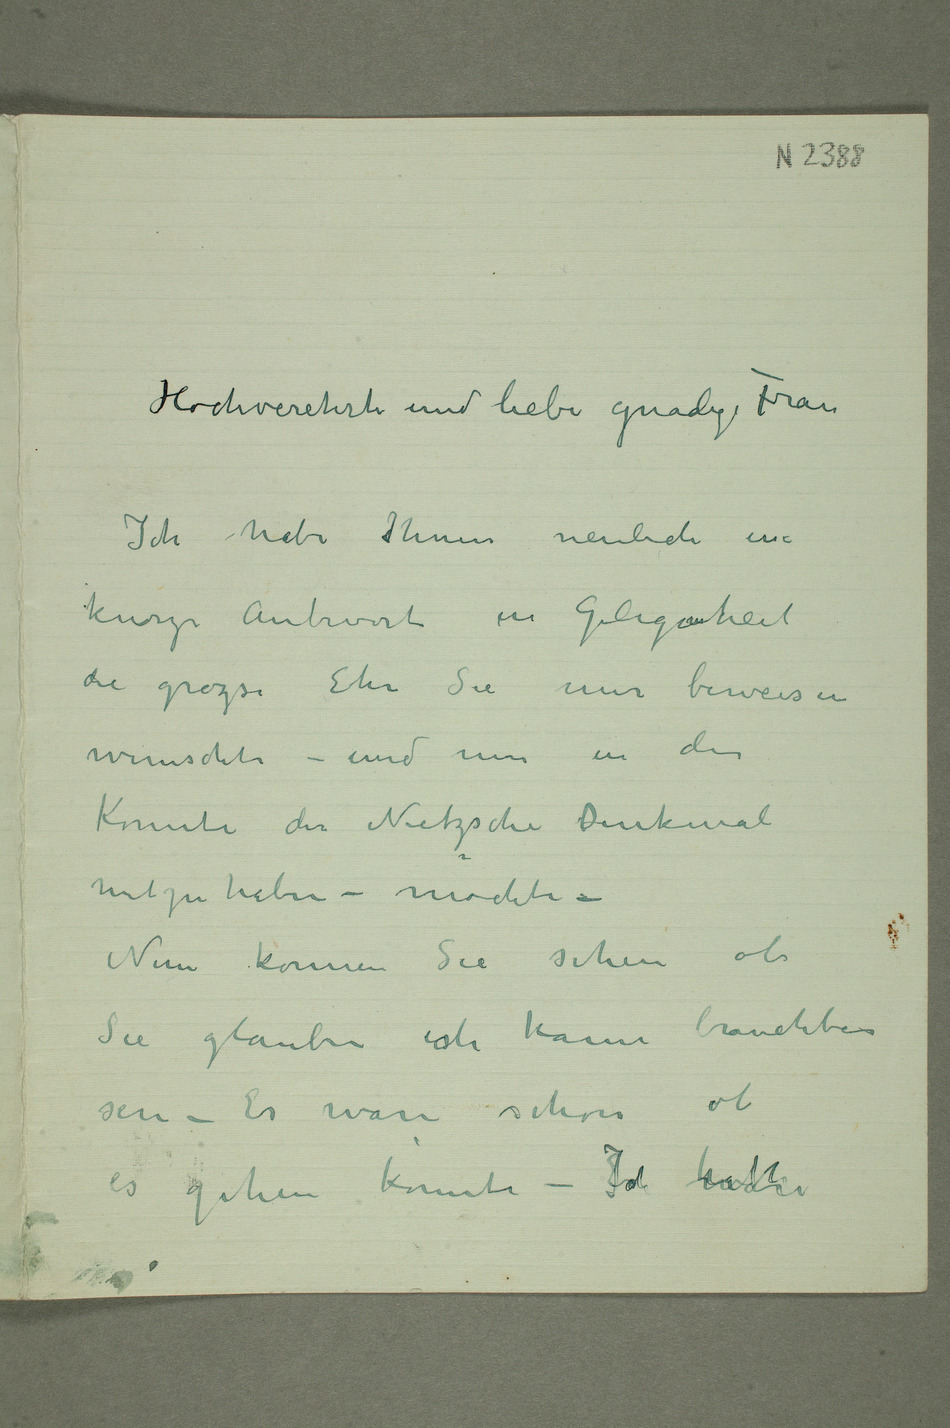 N 2388
Hochverehrte und liebe gnadige Frau
Ich habe Ihnen neulich eine
kurze Antwort in Gelegenheit
die grozse Ehre Sie mir beweisen
wunschte – und mir in der
Komite der Nietzsche Denkmal
mitzu haben – möchte –
Nun konnen Sie sehen ob
Sie glauben ich kann brauchbar
sein – Es ware schön ob
es gehen konnte – Ich hatte